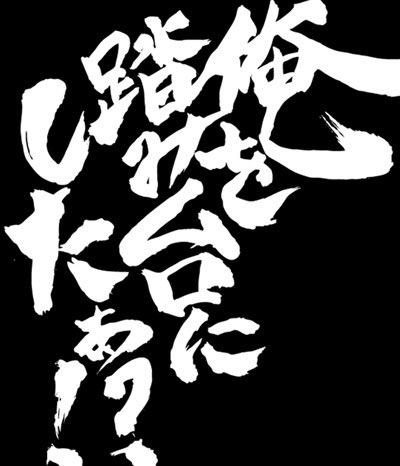 俺を
踏み台に
したぁ!?